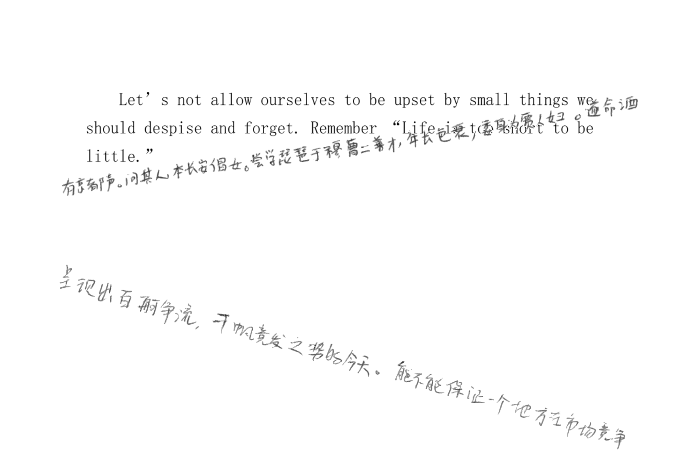 Let’s not allow ourselves to be upset by small things we
should despise and forget. Remember “Life is too short to be
little.”
有京都声。问其人,本长安倡女。尝学琵琶于穆曹二善才,年长色衰,委身为贾人妇。遂命酒
呈现出百舸争流,千帆竞发之势的今天。能不能保证一个地方在市场竞争